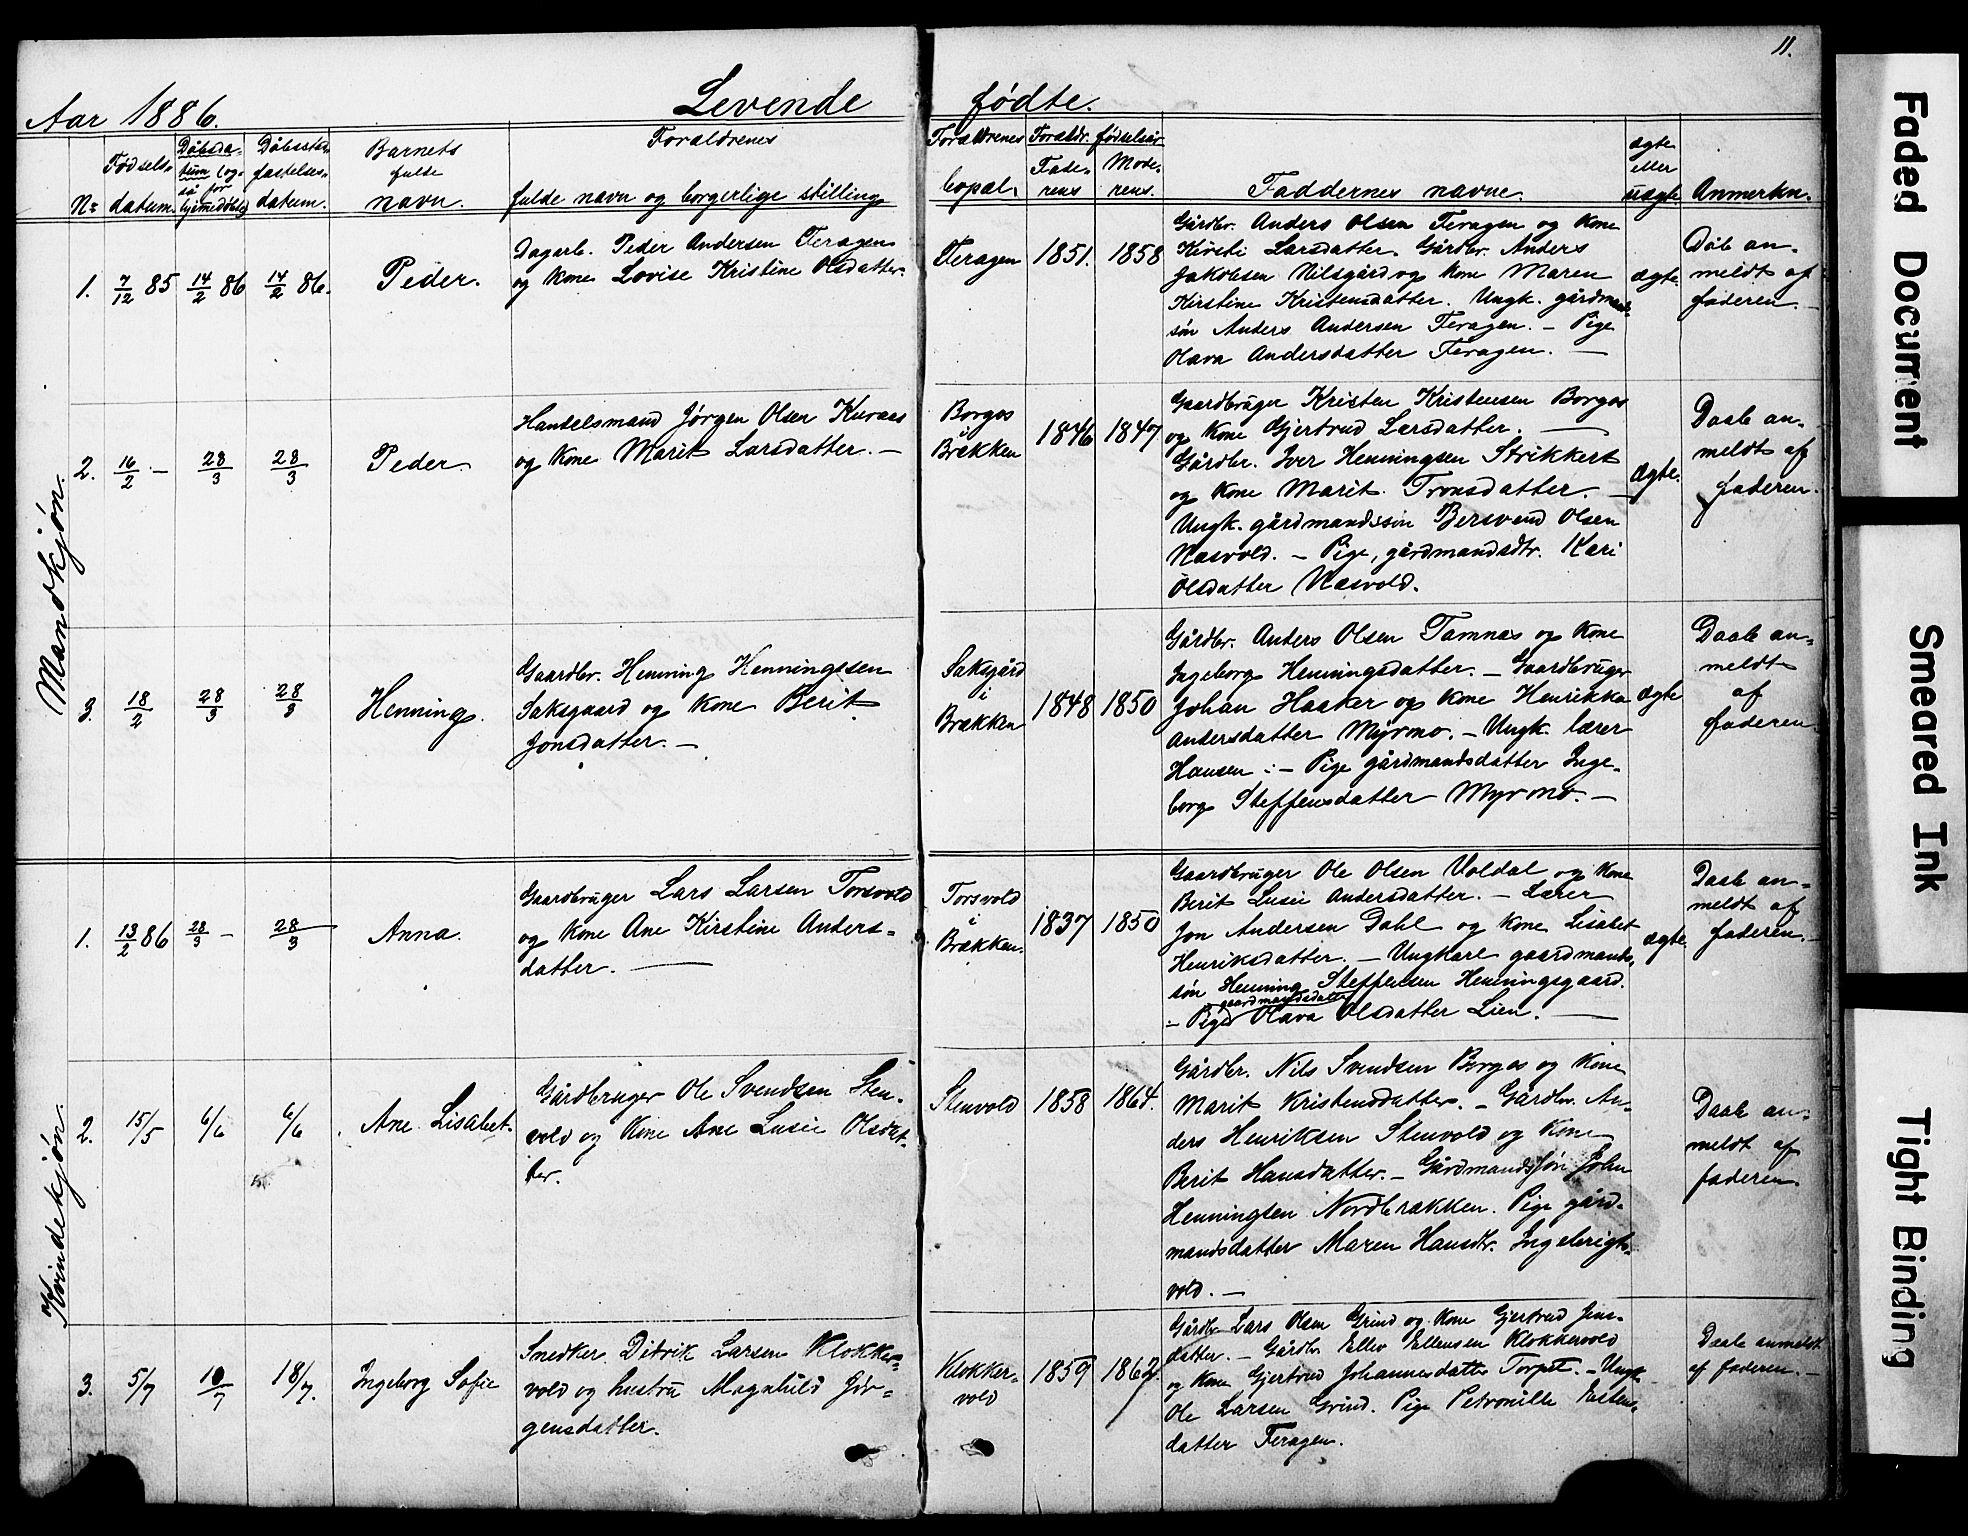 11.
Aar 1886.
Levende fødte.
Nr
Fødsels-
datum.
Døbsda-
tum (og-
så for
hjemmedøbte)
Døbsstad-
fæstelses-
datum.
Barnets
fulde
navn.
Forældrenes
fulde navn og borgerlige stilling
Forældrenes
bopæl.
Forældr. fødselsår
Fade-
rens
Mode-
rens.
Faddernes navne.
ægte
eller
uægte
Anmerkn.
Mandkjøn.
1.
7/12 85
14/2 86
14/2 86.
Peder.
Dagarb. Peder Andersen Feragen
og kone Lovise Kristine Olsdatter.
Feragen
1851.
1858
Gårdbr. Anders Olsen Feragen og kone
Kirsti Larsdatter. Gårdbr. Anders
Jakobsen Nilsgård og kone Maren
Kirstine Kristensdatter. Ungk. gårdmands-
søn Anders Andersen Feragen. — Pige
Olava Andersdatter Feragen. —
ægte
Dåb an-
meldt af
faderen. —
2.
16/2 —
28/3
28/3
Peder
Handelsmand Jørgen Olsen Kuraas
og kone Marit Larsdatter. —
Borgos
i
Brækken
1846
1847
Gaardbruger Kristen Kristensen Borgos
og kone Gjertrud Larsdatter. —
Gårdbr. Iver Henningsen Strikkert
og kone Marit Tronsdatter. —
Ungk. gårdmandssøn Bersvend Olsen
Næsvold. — Pige, gårdmandsdtr. Kari
Olsdatter Næsvold.
Ægte.
Daab an-
meldt af
faderen.
3.
18/2
28/3
28/3
Henning.
Gaardbr. Henning Henningsen
Saksgaard og kone Berit
Jonsdatter. —
Saksgård
i
Brækken
1848
1850
Gårdbr. Anders Olsen Tamnes og kone
Ingeborg Henningsdatter. — Gaardbruger
Johan Haaker og kone Henrikka
Andersdatter Myrmo. — Ungk. lærer
Hansen :— Pige gårdmandsdatter Inge-
borg Steffensdatter Myrmo. —
ægte
Daab an-
meldt
af
faderen
Kvindekjøn.
1.
13/2 86
28/3 —
28/3
Anna.
Gaardbruger Lars Larsen Torsvold
og kone Ane Kirstine Anders-
datter. —
Torsvold
i
Brækken.
1837
1850
Gaardbruger Ole Olsen Voldal og kone
Berit Lusie Andersdatter. — Lærer
Jon Andersen Dahl og kone Lisabet
Henriksdatter. — Ungkarl gaardmands-
søn Henning Steffensen Henningsgaard.
gaardmandsdatter
— Pige Olava Olsdatter Lien. —
Ægte.
Daab an-
meldt af
faderen. —
2.
15/5
6/6
6/6
Ane Lisabet.
Gårdbruger Ole Svendsen Sten-
vold og kone Ane Lusie Olsdat-
ter.
Stenvold
1858
1864.
Gårdbr. Nils Svendsen Borgos og kone
Marit Kristensdatter. — Gårdbr. An-
ders Henriksen Stenvold og kone
Berit Hansdatter. — Gårdmandssøn John
Henningsen Nordbrækken. Pige gård-
mandsdatter Maren Hansdtr. Ingebrigts-
vold. —
Daab an-
meldt af
faderen.
3.
5/7
18/7
18/7.
Ingeborg Sofie
Snedker Didrik Larsen Klokker-
vold og hustru Magnhild Jør-
gensdatter.
Klokker-
vold
1859
1862.
Gårdbr Lars Olsen Grind og kone Gjertrud Jens-
datter. — Gårdbr Ellev Ellevsen Klokkervold
og kone Gjertrud Johannesdatter Torpet. — Ungk.
Ole Larsen Grind. Pige Petronille Esten-
datter Feragen.
Daab anmeldt
af faderen. —
Faded Document
Smeared Ink
Tight Binding